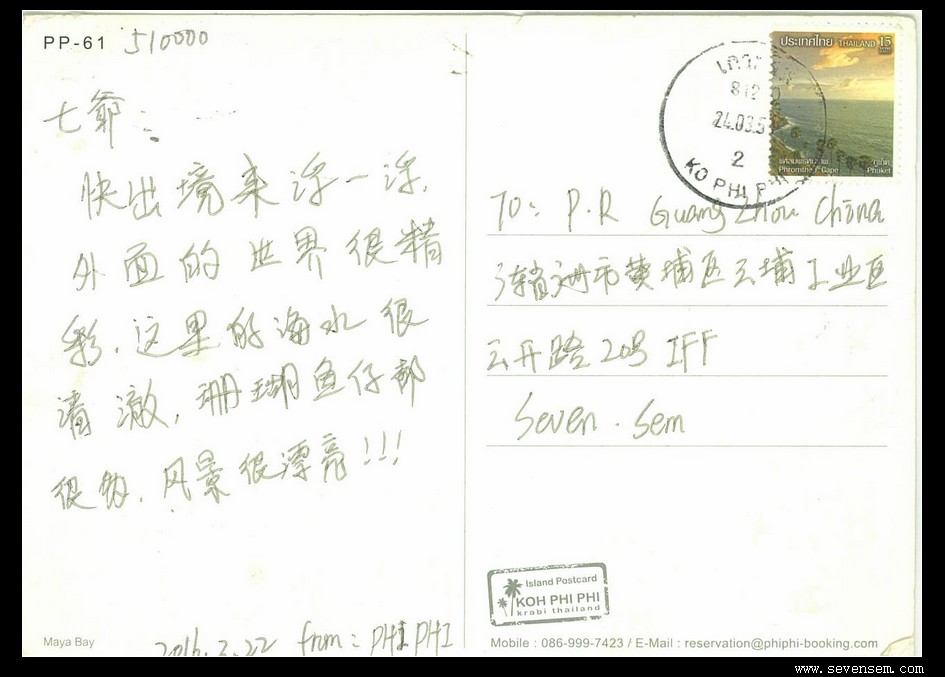 PP-61 510000
七爷:
快出境来浮一浮,
外面的世界很精
彩.这里的海水很
清澈,珊瑚鱼仔都
很多,风景很漂亮!!!
Maya Bay
2016.3.22 from: PHI PHI
ประเทศไทย THAILAND 15
Phromthep Cape
ภูเก็ต
Phuket
24.03.5
2
KO PHI PHI
TO: P.R Guang Zhou China
市黄埔区云埔工业区
云开路20号 IFF
Seven . Sem
Island Postcard
KOH PHI PHI
krabi thailand
Mobile : 086-999-7423 / E-Mail : reservation@phiphi-booking.com
www.sevensem.com